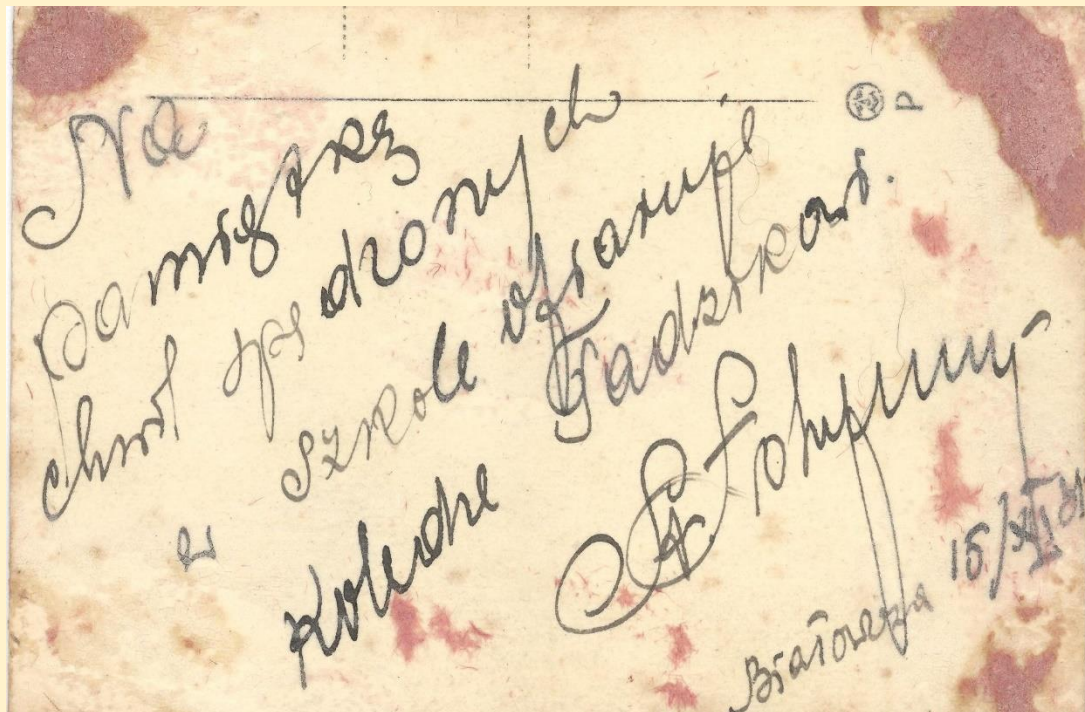 Na
Pamiątkę
chwil spędzonych
w szkole ofiaruję
Koledze Tadzikowi.
St.
Białowieża 15/XII
P